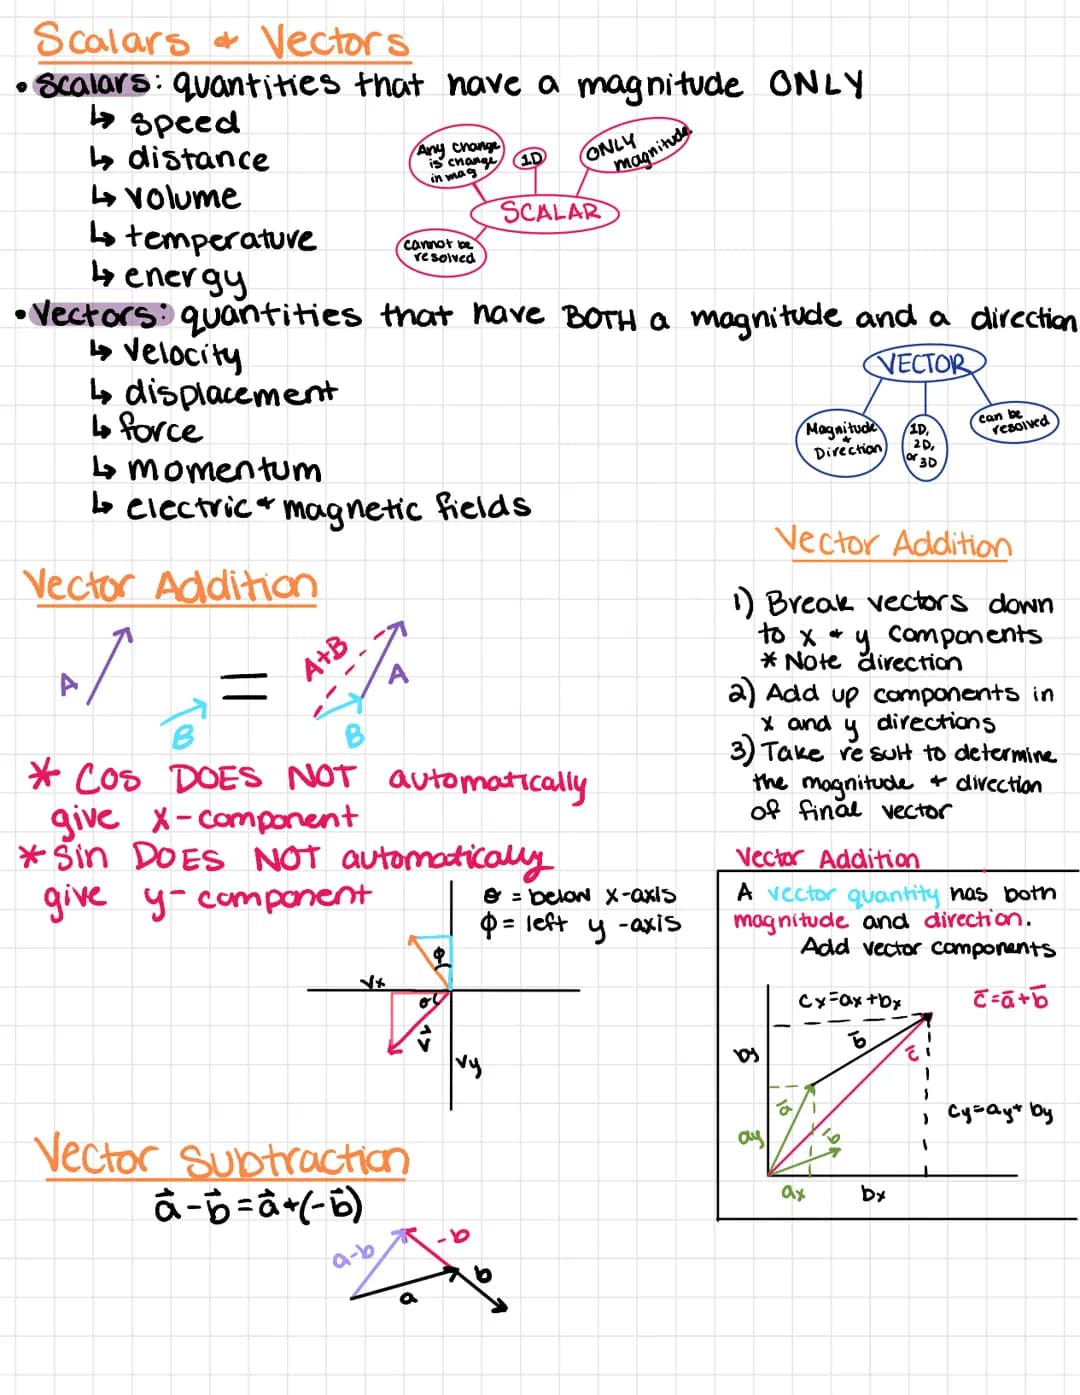 Scalars + Vectors
• Scalars: quantities that have a magnitude ONLY
↳ speed
↳ distance
↳ volume
↳ temperature
↳ energy
Any change
is change
in mag
1D
ONLY
magnitude
SCALAR
cannot be
resolved
• Vectors: quantities that have BOTH a magnitude and a direction
↳ velocity
↳ displacement
↳ force
↳ momentum
↳ electric + magnetic fields
VECTOR
Magnitude
+
Direction
1D,
2D,
or 3D
can be
resolved
Vector Addition
A
B
=
A+B
A
B
* Cos DOES NOT automatically
give x-component
* Sin DOES NOT automatically
give y-component
θ = below x-axis
ϕ = left y-axis
ϕ
Vx
θ
v⃗
Vy
Vector Subtraction
a⃗ - b⃗ = a⃗ + (-b⃗)
a-b
-b
b
a
Vector Addition
1) Break vectors down
to x + y components
* Note direction
2) Add up components in
x and y directions
3) Take result to determine
the magnitude + direction
of final vector
Vector Addition
A vector quantity has both
magnitude and direction.
Add vector components
Cx=ax+bx
c̄=ā+b̄
by
b̄
c̄
ā
Cy=ay+by
ay
b̄
ax
bx